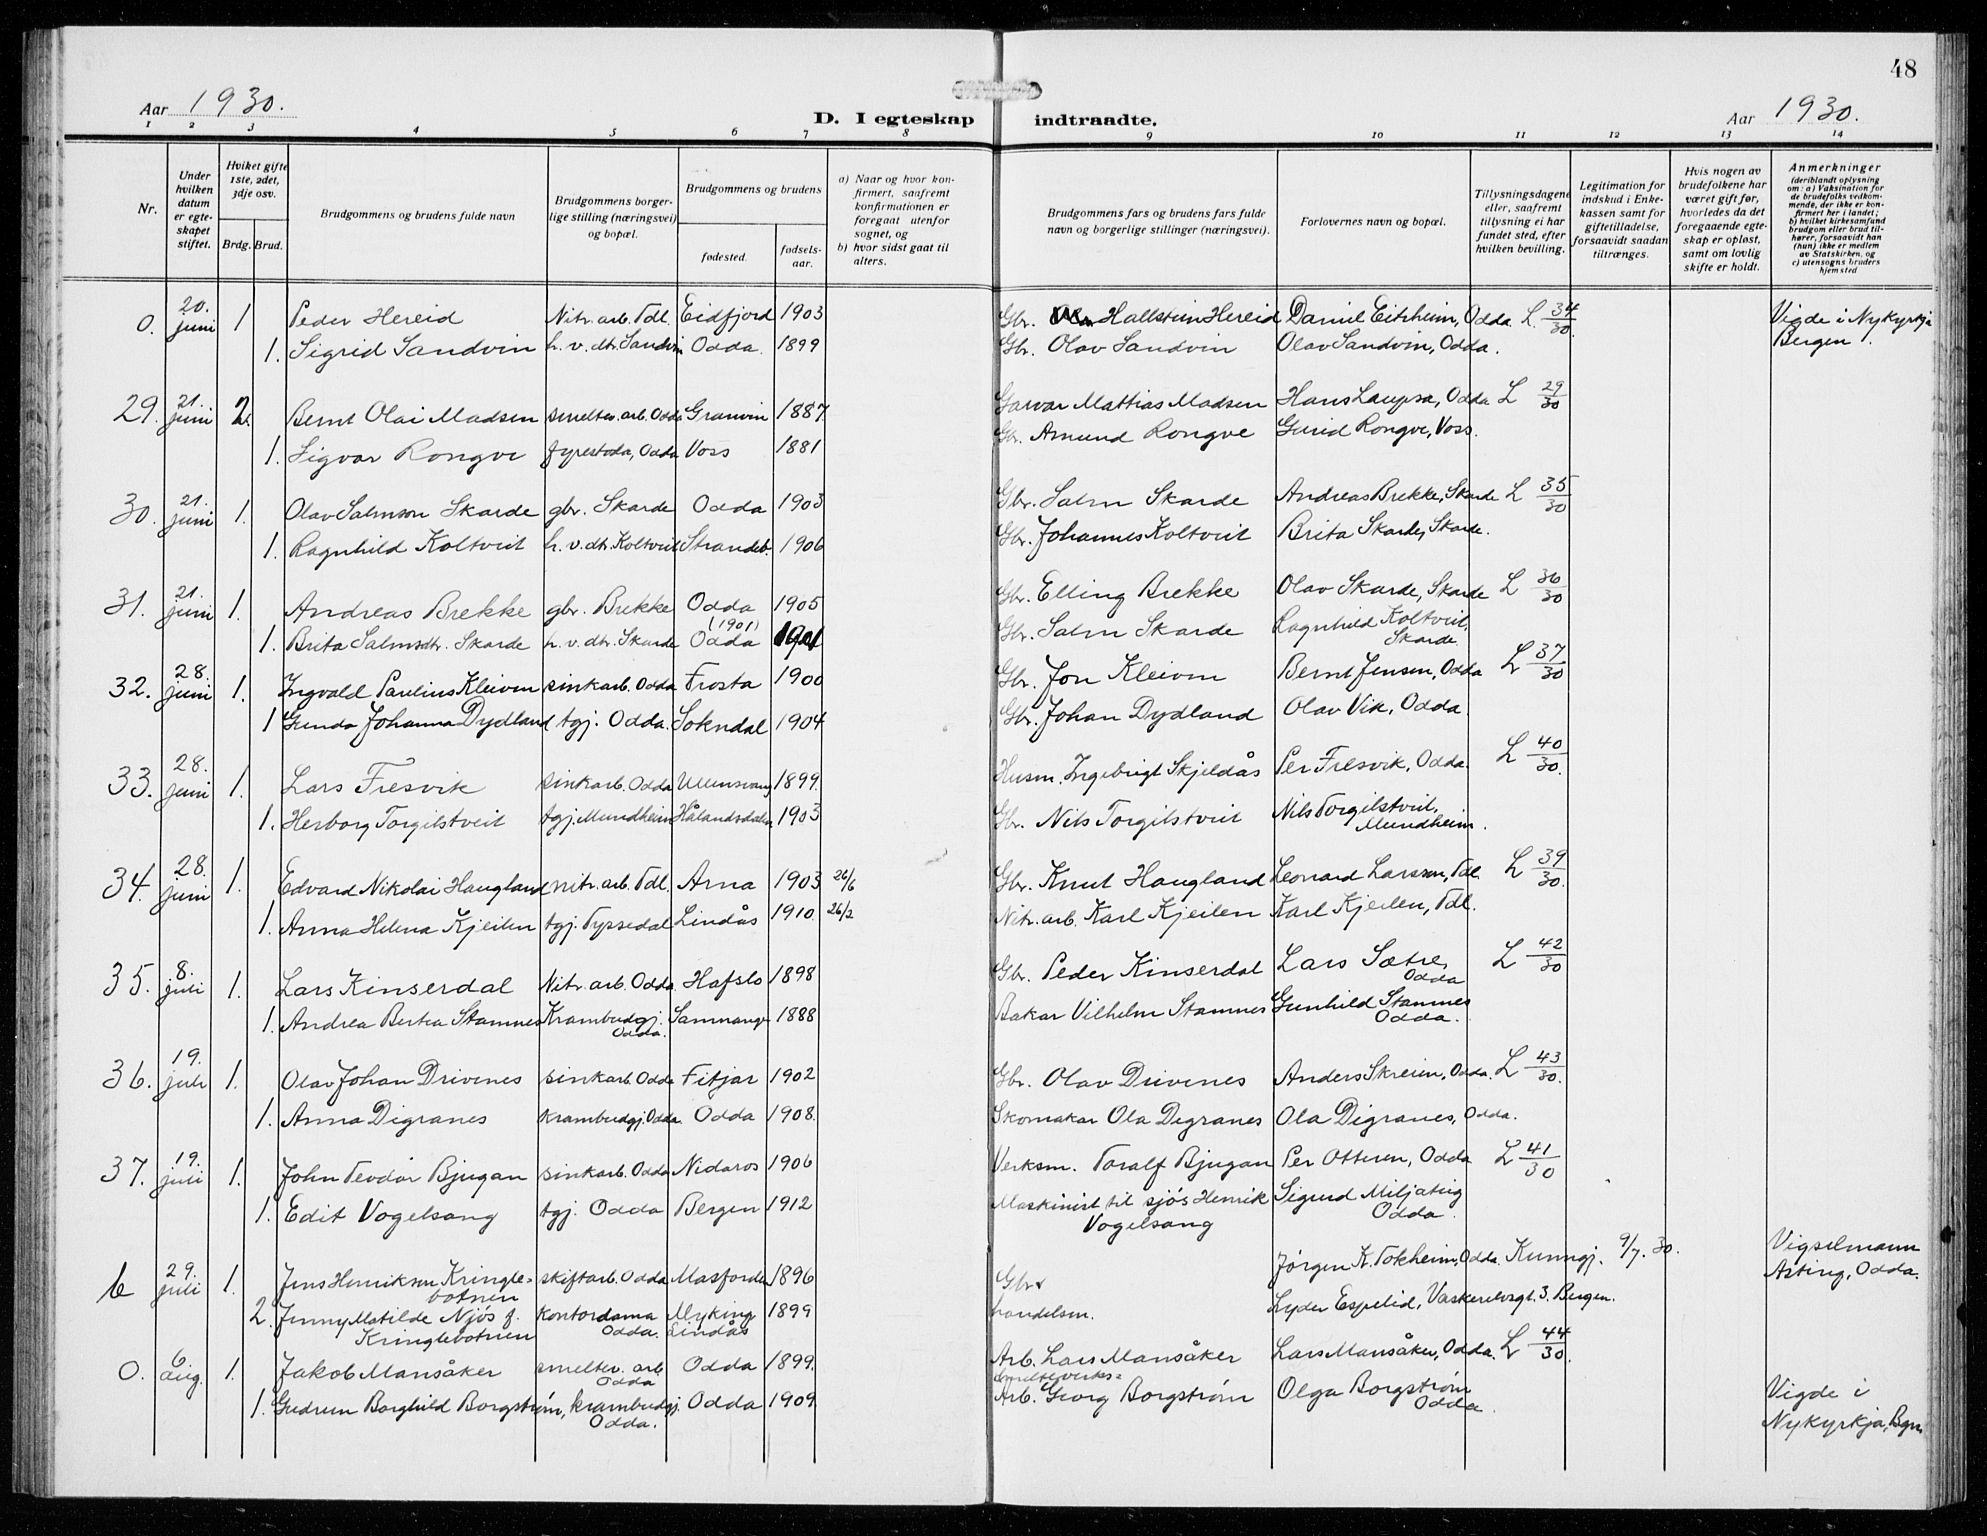 48
Aar 1930.
D. I egteskap indtraadte.
Aar 1930.
1 2 3 4 5 6 7 8 9 10 11 12 13 14
Nr.
Under hvilken datum er egteskapet stiftet.
Hvilket gifte 1ste, 2det, 3dje osv.
Brdg. Brud.
Brudgommens og brudens fulde navn
Brudgommens borgerlige stilling (næringsvei) og bopæl.
Brudgommens og brudens
fødested.
fødselsaar.
a) Naar og hvor konfirmert, saafremt konfirmationen er foregaat utenfor sognet, og
b) hvor sidst gaat til alters.
Brudgommens fars og brudens fars fulde navn og borgerlige stillinger (næringsvei).
Forlovernes navn og bopæl.
Tillysningsdagene eller, saafremt tillysning ei har fundet sted, efter hvilken bevilling.
Legitimation for indskud i Enkekassen samt for giftetilladelse, forsaavidt saadan tiltrænges.
Hvis nogen av brudefolkene har været gift før, hvorledes da det foregaaende egteskap er opløst, samt om lovlig skifte er holdt.
Anmerkninger
(deriblandt oplysning om: a) Vaksination for de brudefolks vedkommende, der ikke er konfirmert her i landet; b) hvilket kirkesamfund brudgom eller brud tilhører, forsaavidt han (hun) ikke er medlem av Statskirken, og c) utensogns bruders hjemsted
0. 20. juni 1 Peder Hereid Nitr. arb. Tdl. Eidfjord 1903 Gbr. Hallstein Hereid Daniel Eitrheim, Odda L. 34/30 Vigde i Nykyrkja
1. Sigrid Sandvin h. v. dtr. Sandvin Odda. 1899 Gbr. Olav Sandvin Olav Sandvin, Odda. Bergen.
29. 21. juni 2. Bernt Olai Madsen smeltev. arb. Odda Granvin 1887 Garvar Mattias Madsen Hans Laupsa, Odda L 29/30
1. Sigvor Rongve fyrestoda, Odda Voss 1881 Gbr. Amund Rongve Gurid Rongve, Voss.
30. 21. juni 1. Olav Salmson Skarde gbr. Skarde Odda 1903 Gbr. Salm Skarde Andreas Brekke, Skarde L 35/30
1. Ragnhild Koltveit h. v. dtr. Koltveit Strandeb. 1906 Gbr. Johannes Koltveit Brita Skarde, Skarde.
31. 21. juni 1. Andreas Brekke gbr. Brekke Odda 1905 Gbr. Elling Brekke Olav Skarde, Skarde L 36/30
1. Brita Salmsdtr. Skarde h. v. dtr. Skarde Odda (1901) 1901 Gbr. Salm Skarde Ragnhild Koltveit, Skarde
32. 28. juni 1. Ingvald Paulius Kleiven sinkarb. Odda Frosta 1900 Gbr. Jon Kleiven Bernt Jensen, Odda L 37/30
1 Gunda Johanna Dydland tgj. Odda. Sokndal 1904 Gbr. Johan Dydland Olav Vik, Odda
33. 28. juni 1. Lars Fresvik sinkarb. Odda Ullensvang 1899. Husm. Ingebrigt Skjeldås Per Fresvik, Odda. L 40/30.
1. Herborg Torgilstveit tgj. Mundheim Hålandsdalen 1903 Gbr. Nils Torgilstveit Nils Torgilstveit, Mundheim.
34. 28. juni 1. Edvard Nikolai Haugland nitr. arb. Tdl. Arna 1903 26/6 Gbr. Knut Haugland Leonard Larsson, Tdl. L 39/30.
1. Anna Helena Kjeilen tgj. Tyssedal Lindås 1910. 26/2 Nitr. arb. Karl Kjeilen Karl Kjeilen, Tdl.
35. 8. juli 1. Lars Kinserdal Nitr. arb. Odda Hafslo 1898 Gbr. Peder Kinserdal Lars Sætre, Odda L 42/30
1. Andrea Bertea Stamnes Krambudgj. Odda. Samnanger 1888 Bakar Vilhelm Stamnes Gunhild Stamnes Odda.
36. 19. juli 1. Olav Johan Drivenes sinkarb. Odda Fitjar 1902 Gbr. Olav Drivenes Anders Skreien, Odda. L 43/30.
1. Anna Digranes Krambudgj. Odda. Odda 1908. Skomakar Ola Digranes Ola Digranes, Odda.
37. 19. juli 1. John Teodor Bjugan sinkarb. Odda Nidaros 1906 Verksm. Toralf Bjugan Per Otteren, Odda L 41/30
1. Edit Vogelsang tgj. Odda Bergen 1912 Maskinist til sjøs Henrik Vogelsang Sigurd Miljateig Odda.
b 29. juli 1. Jens Henriksen Kringlebotnen skiftarb. Odda Masfjorden 1896 Gbr. Jørgen K. Tokheim, Odda. Kunngj. 9/7. 30. Vigselmann Asting, Odda.
2. Jenny Matilde Njøs f. Kringlebotnen kontordama Odda. Myking Lindås 1899 handelsm. Lyder Espelid, Vaskerelvsgt. 3. Bergen.
0. 6 aug. 1. Jakob Mansåker smeltev. arb. Odda Odda 1899. Arb. Lars Mansåker Lars Mansåker, Odda. L 44/30.
1. Gudrun Borghild Borgstrøm, krambudgj. Odda. Odda 1909. Smelteverks= Arb. Georg Borgstrøm Olga Borgstrøm Odda. Vigde i Nykyrkja, Bgn